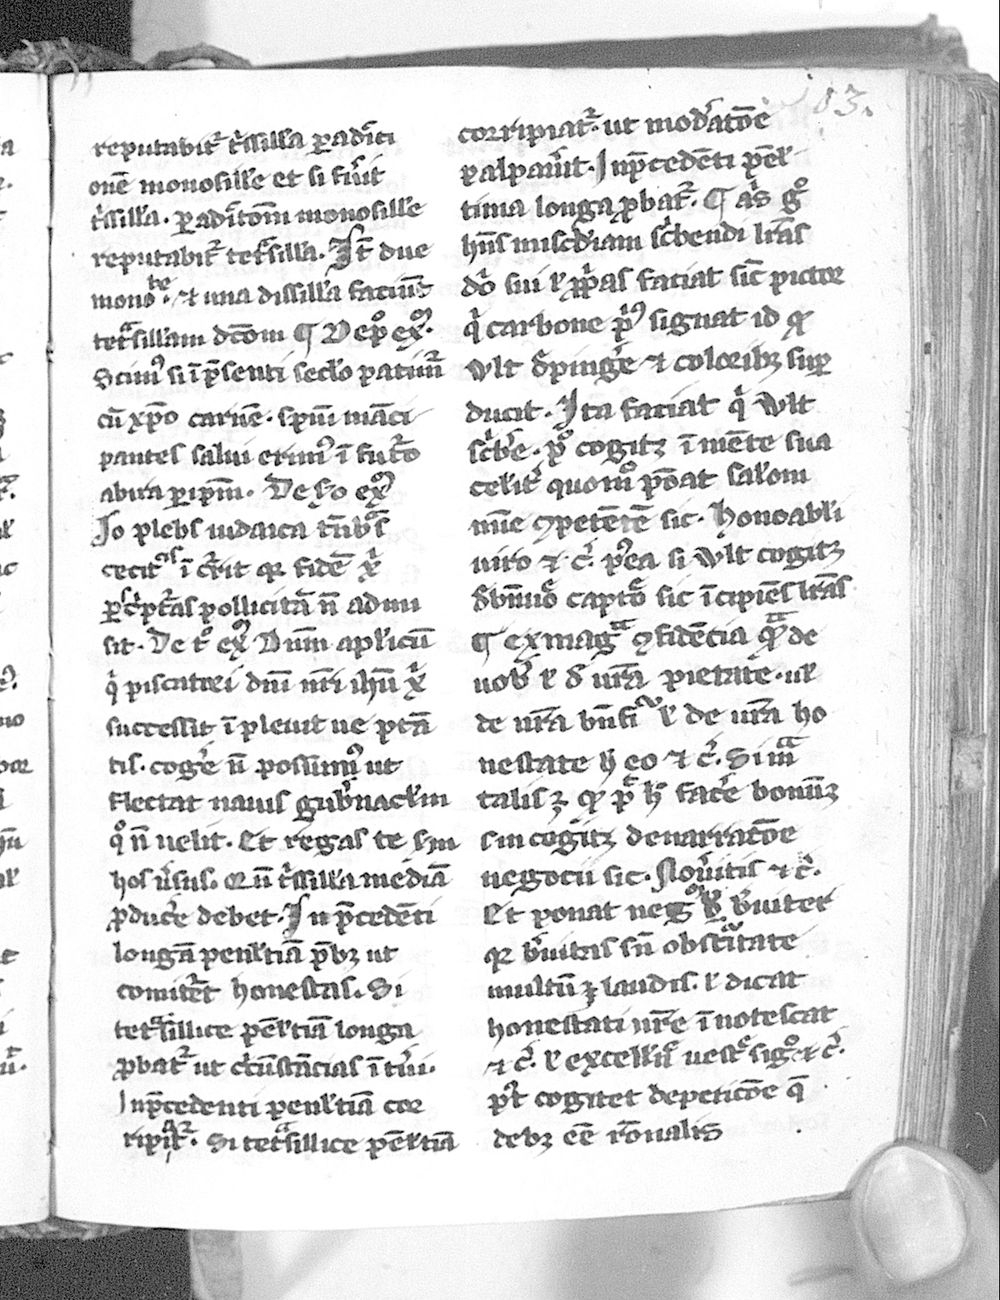 103.
reputabit᷑ t᷑ssilla ꝑ adit̃i
onẽ monosille et si fũit
t᷑ssilla. ꝑ adit̃om̃ monosille
reputabit᷑ tet᷑silla. Itẽ due
mono be. ⁊ una dissilla faciũt
tet᷑sillam dc̃om ¶ De p͛o ex͛o.
Scim⁹ si ĩ p̃senti secl̃o patim᷑
cũ xp̃o carnẽ. sp̃m mãci
pantes salui erim⁹ ĩ fut᷑o
abita ꝑ ip̃m. De so ex͛o
Io plebs iudaica t̃nbͦs
cecit᷑ᵗⁱˢ ĩ c᷑rit qr fidẽ xⁱ
ꝑ sc᷑pt᷑as pollicitã ñ admi
sit. De tͦ ex͛o Dum̃ aplicũ
qⁱ piscatori dñi nr̃i ihũ xⁱ
successit ĩ pleuit ue ptã
tis. cog̃e ñ possum⁹ ut
flectat nauis gub̃naclm
qͦ ñ uelit. Et regas te sm
hos ũsus. Qñ t᷑ssilla mediã
ꝓduc̃e debet. In p̃cedẽti
longã penl̃tiã p̃bꝫ ut
comit̃et honestas. Si
tet᷑sillice pẽl̃tiã longa
ꝓbat᷑ ut c᷑cũstãcias ĩ tũi.
In p̃cedenti penl̃tiã cor
ripit᷑. Si tet᷑sillice pẽl̃tiã
corripiat᷑. ut mod̃atõe
palpauit. In p̃cedẽti pẽl
tima longa ꝓbat᷑. ¶ Aⁱs gͦ
hñs misc̃diam sc᷑bendi lr̃as
dõ sui l ꝓp̃as faciat sic̃ pictor
qⁱ carbone p᷑⁹ signat id qꝫ
vlt dping̃e ⁊ coloribꝫ suꝑ
ducit. Ita faciat qⁱ vlt
sc᷑b̃e. p͛o cogitꝫ ĩ mẽte sua
celit᷑ quomͦ põat salom
mñe ꝯpetẽtẽ sic. Honoabli
uiro ⁊ c̃. p̃ea si vlt cogitꝫ
d bñuoͦ captõ sic ĩcipiẽs lr̃as
¶ Ex magᵃ ꝯfidẽcia qᵃ de
uob̃ l d ur̃a pietate. ul
de ur̃a bñfiᵃ l de ur̃a ho
nestate h̃ eo ⁊ c̃. Si mᵃ
talis ꝫ qꝫ p̃ h̃ fac̃e bonũꝫ
sm cogitꝫ de narratõe
negocii sic. Nou̾itis ⁊ c̃.
Et ponat negͦᵐ b̃uiter
qr b̃uitas sñ obsc̃itate
multũ ꝫ laudis. l dicat
honestati ur̃e ĩnotescat
⁊ c̃. l excell̃is uestͦ sigͦ ⁊ c̃.
pͦt cogitet de peticõe q̃
debꝫ eẽ rõnalis